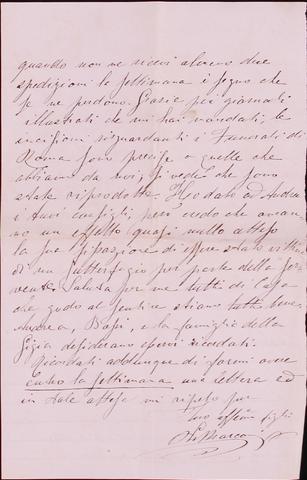 quando non ne ricevi almeno due
spedizioni la settimana è segno che
se ne perdono. Grazie pei giornali
illustrati che mi hai mandati, le
incisioni riguardanti i Funerali di
Roma sono precise a quelle che
abbiamo da noi, si vede che sono
state riprodotte. Ho dato ad Andrea
i tuoi consigli, però credo che avran
no un effetto quasi nullo atteso
la sua di essere stato vittima
di un sutterfugio per parte della
Saluta per me tutti di Casa
che godo al sentire stiano tutti bene
Andrea, Bapi, e la famiglia della
Gigia desiderano esservi ricordati.
Ricordati addunque di farmi avere
entro la settimana una lettera ed
in tale attesa mi ripeto pur
tuo affmo figlio